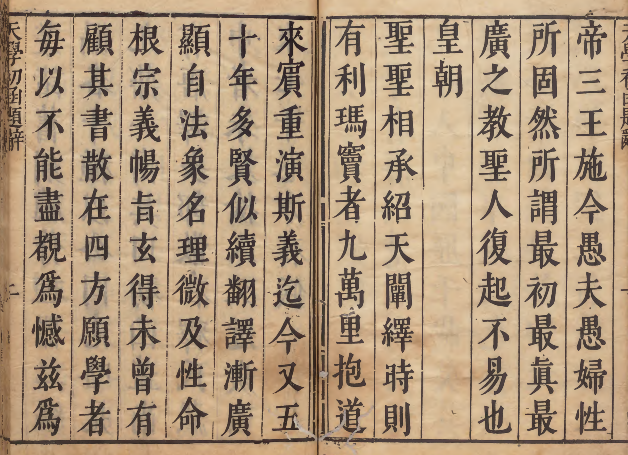 帝三王施今愚夫愚婦性
所固然所謂最初最眞最
廣之教聖人復起不易也
皇朝
聖聖相承紹天闡繹時則
有利瑪竇者九萬里抱道
來賔重演斯義迄今又五
十年多賢似續翻譯漸廣
顯自法象名理微及性命
根宗義暢旨玄得未曾有
顧其書散在四方願學者
每以不能盡覩爲憾兹爲
天學初函題辭
二